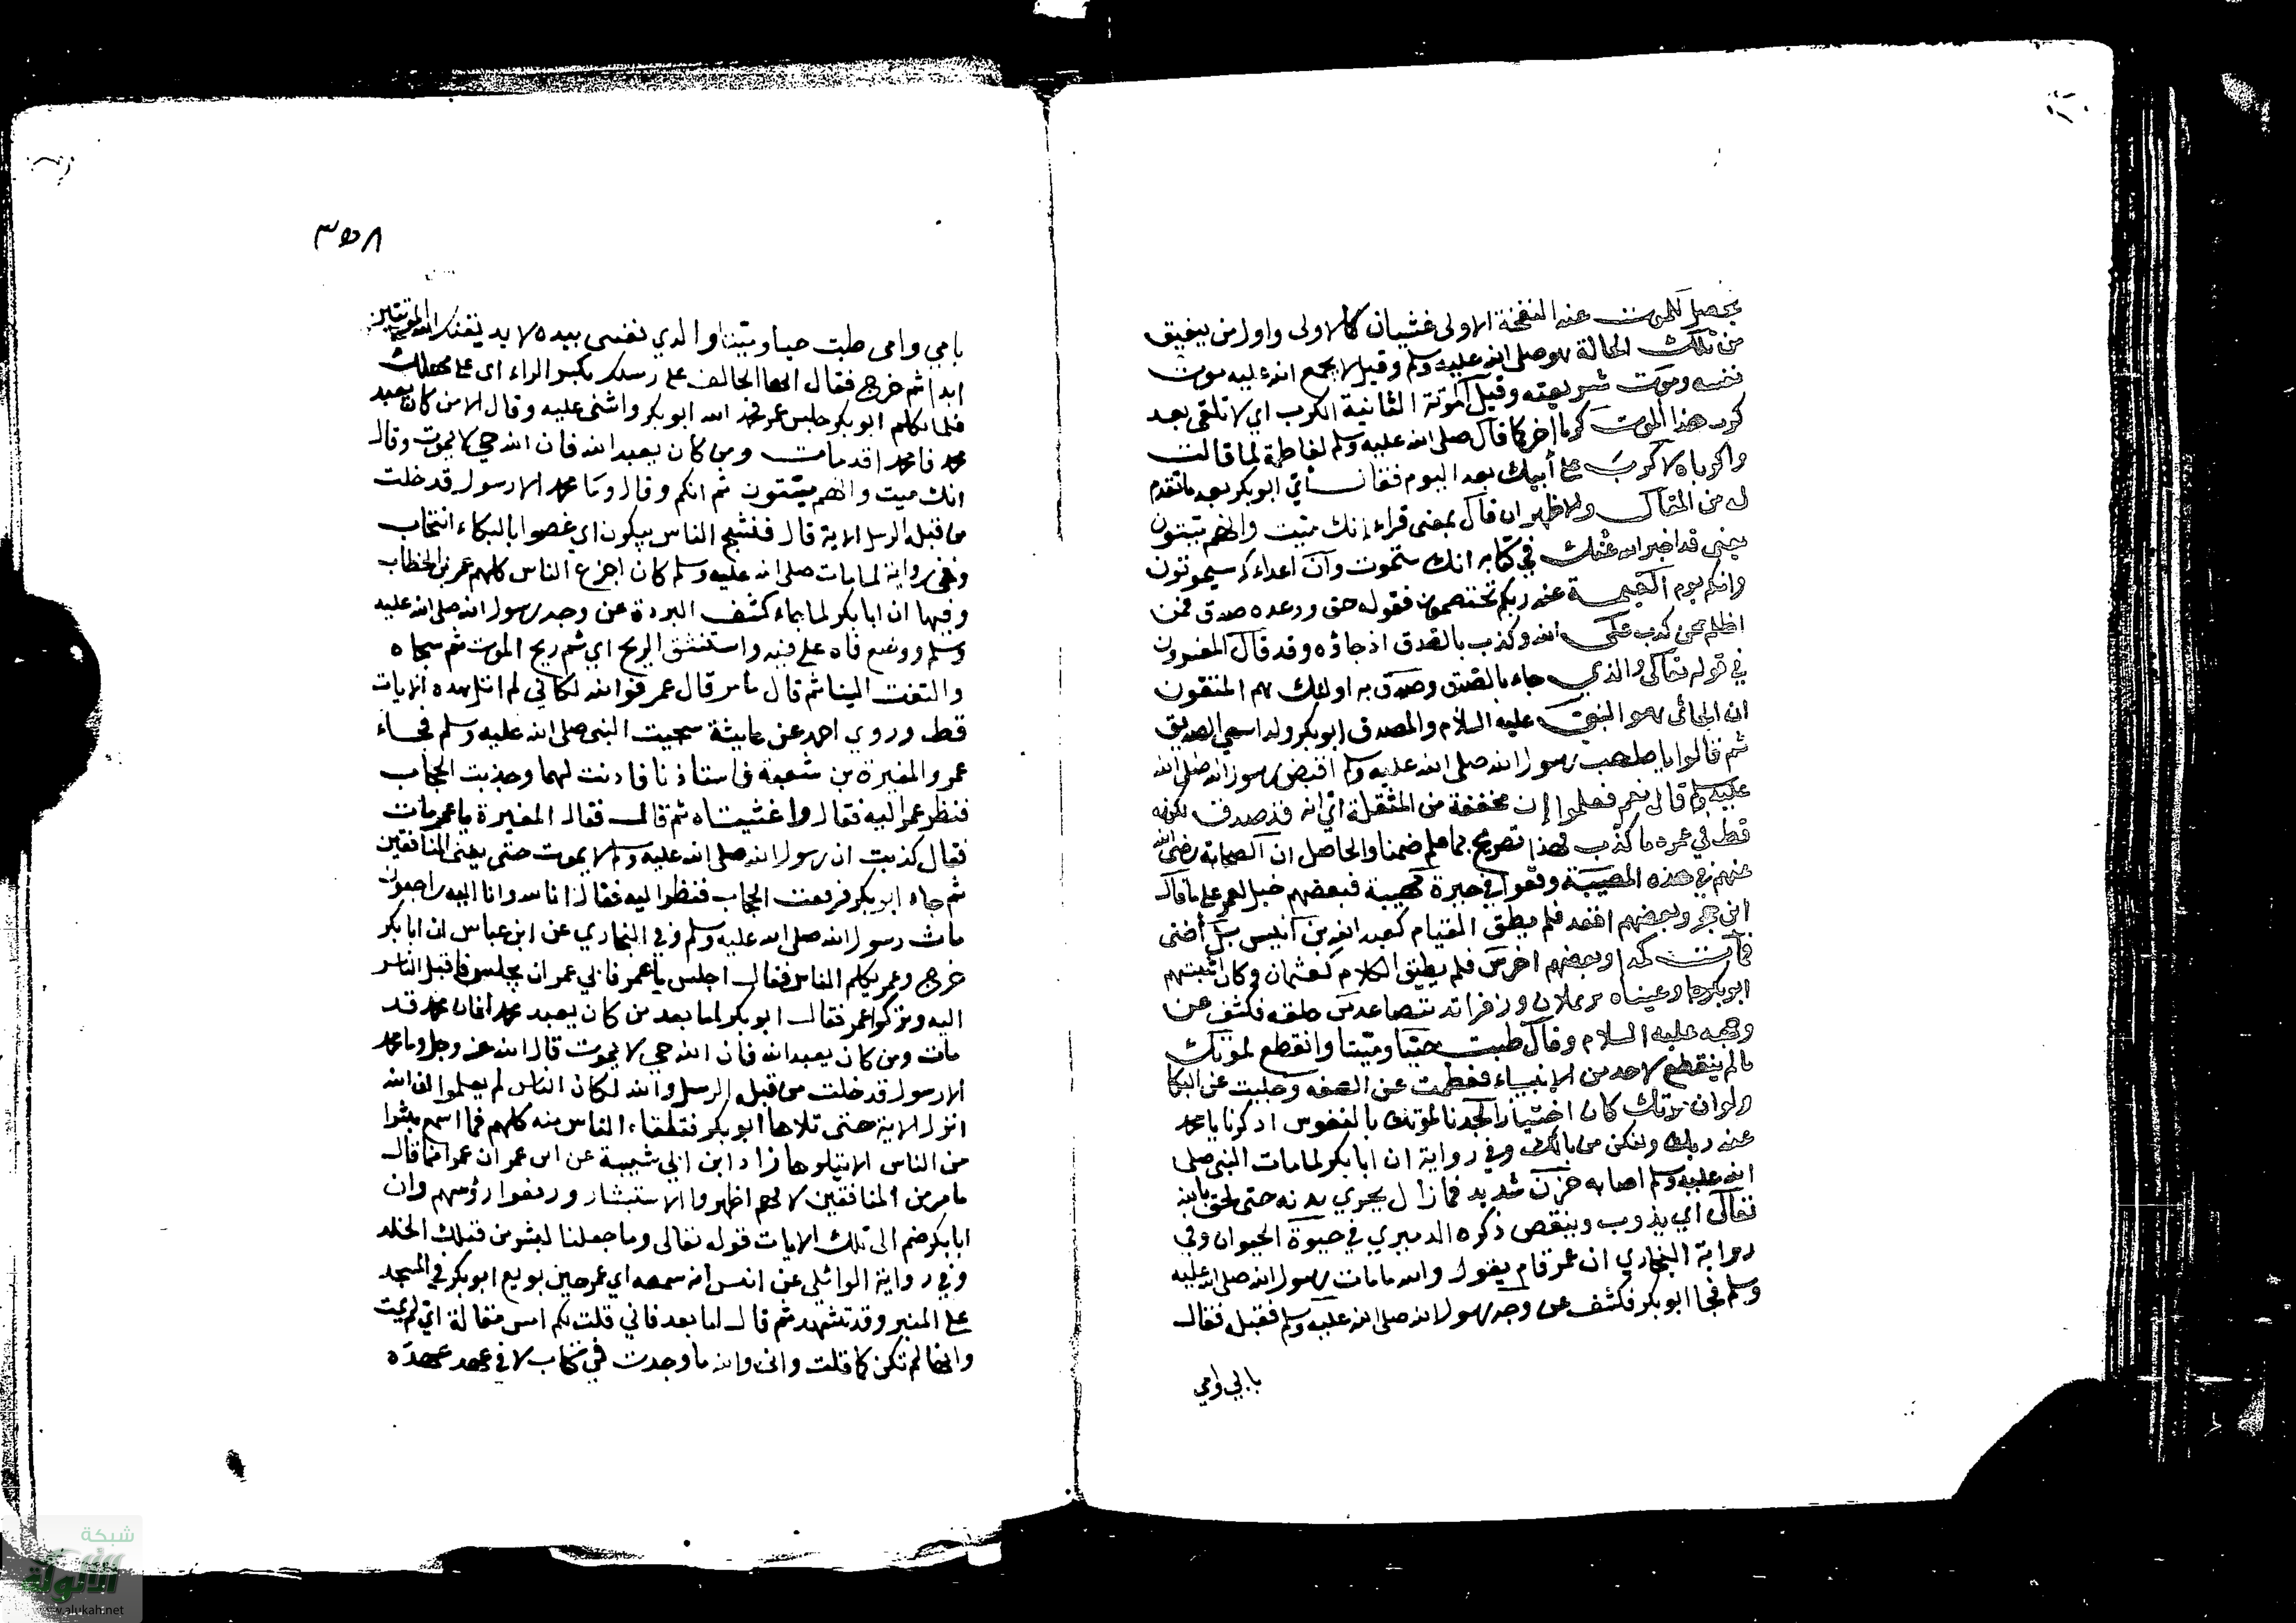 يحصل للموت عند النفخة الاولى غشيان كالاولى واول من يفيق
من تلك الحالة هو صلى الله عليه وسلم وقيل لا يجمع الله عليه موت
نفسه وموت شريعته وقيل الموتة الثانية الكرب اي لا تلقى بعد
كرب هذا الموت كربا اخر كما قال صلى الله عليه وسلم لفاطمة لما قالت
واكرباه لا كرب على أبيك بعد اليوم فقال أي ابو بكر بعد ما تقدم
له من المقال والاظهر ان قال بمعنى قراء إنك ميت وانهم ميتون
يعني قد اخبر الله عنك في كتابه انك ستموت وأن اعداءك سيموتون
وانكم يوم القيمة عند ربكم تختصمون فقوله حق ووعده صدق فمن
اظلم ممن كذب على الله وكذب بالصدق اذ جاؤه وقد قال المفسرون
في قوله تعالى والذي جاء بالصدق وصدق به اولئك هم المتقون
ان الجائي هو النبي عليه السلام والمصدق ابو بكر ولذا سمي الصديق
ثم قالوا يا صاحب رسول الله صلى الله عليه وسلم اقبض رسول الله صلى الله
عليه وسلم قال نعم فعلموا إن مخففة من المثقلة اي انه قد صدق لكونه
قط في عمره ما كذب فهذا تصريح بما علم ضمنا والحاصل ان الصحابة رضي الله
عنهم في هذه المصيبة وقعوا في حيرة عجيبة فبعضهم خبل لعمر على ما قال
ابن حجر وبعضهم اقعد فلم يطق القيام كعبد الله بن أنيس بل أضنى
فمات كمدا وبعضهم اخرس فلم يطق الكلام كعثمان وكان اثبتهم
ابو بكر جاء وعيناه تهملان وزفراته تتصاعد من حلقه فكشف عن
وجهه عليه السلام وقال طبت حيّا وميّتا وانقطع لموتك
ما لم ينقطع لاحد من الانبياء فعظمت عن الصفه وجلبت عن البكا
ولو ان موتك كان اختيارا لجدنا لموتك بالنفوس اذكرنا يا محمد
عند ربك ولنكن من بالك وفي رواية ان ابا بكر لما مات النبي صلى
الله عليه وسلم اصابه حزن شديد فما زال يجري بدنه حتى لحق بالله
تعالى اي يذوب وينقص ذكره الدميري في حيوة الحيوان وفي
رواية البخاري ان عمر قام يقول والله ما مات رسول الله صلى الله عليه
وسلم فجا ابو بكر فكشف عن وجه رسول الله صلى الله عليه وسلم فقبله فقال
بابي وامي
٣٥٨
بابي وامي طبت حيا وميّتا والذي نفسي بيده لا يذيقنك الله الموتتين
ابدا ثم خرج فقال ايها الحالف على رسلك بكسر الراء اى على مهلك
فلما تكلم ابو بكر جلس عمر فحمد الله ابو بكر واثنى عليه وقال الا من كان يعبد
محمدا فان محمدا قد مات ومن كان يعبد الله فان الله حي لا يموت وقال
انك ميت وانهم ميتون ثم انكم وقال وما محمد الا رسول قد خلت
من قبله الرسل الاية قال فنشج الناس يبكون اي غصوا بالبكاء انتحاب
وفي رواية لما مات صلى الله عليه وسلم كان اجزع الناس كلهم عمر بن الخطاب
وفيها ان ابا بكر لما جاء كشف البردة عن وجه رسول الله صلى الله عليه
وسلم ووضع فاه على فيه واستنشق الريح اي شم ريح الموت ثم سجاه
والتفت الينا ثم قال ما مر قال عمر فوالله لكاني لم اتل هذه الايات
قط وروي احمد عن عايشة سجيت النبي صلى الله عليه وسلم فجاء
عمر والمغيرة بن شعبة فاستاذنا فاذنت لهما وجذبت الحجاب
فنظر عمر اليه فقال واغشيتاه ثم قال فقال المغيرة يا عمر مات
فقال كذبت ان رسول الله صلى الله عليه وسلم لا يموت حتى يفنى المنافقين
ثم جاء ابو بكر فرفعت الحجاب فنظر اليه فقال انا لله وانا اليه راجعون
مات رسول الله صلى الله عليه وسلم وفي البخاري عن ابن عباس ان ابا بكر
خرج وعمر يكلم الناس فقال اجلس يا عمر فابي عمر ان يجلس فاقبل الناس
اليه وتركوا عمر فقال ابو بكر اما بعد من كان يعبد محمدا فان محمدا قد
مات ومن كان يعبد الله فان الله حي لا يموت قال الله عز وجل وما محمد
الا رسول قد خلت من قبله الرسل والله لكان الناس لم يعلموا ان الله
انزل الاية حتى تلاها ابو بكر فتلقاه الناس منه كلهم فما اسمع بشرا
من الناس الا يتلوها زاد ابن ابي شيبة عن ابن عمر ان عمر انما قال
ما مر من المنافقين لانهم اظهروا الاستبشار ورفعوا رؤسهم وان
ابا بكر ضم الى تلك الايات قوله تعالى وما جعلنا لبشر من قبلك الخلد
وفي رواية الوائلي عن انس أنه سمعه اي عمر حين بويع ابو بكر في المسجد
على المنبر وقد تشهد ثم قال اما بعد فاني قلت لكم امس مقالة اي لم يمت
وانها لم تكن كما قلت واني والله ما وجدت في كتاب لا في عهد عهده
شبكة
الألوكة
www.alukah.net